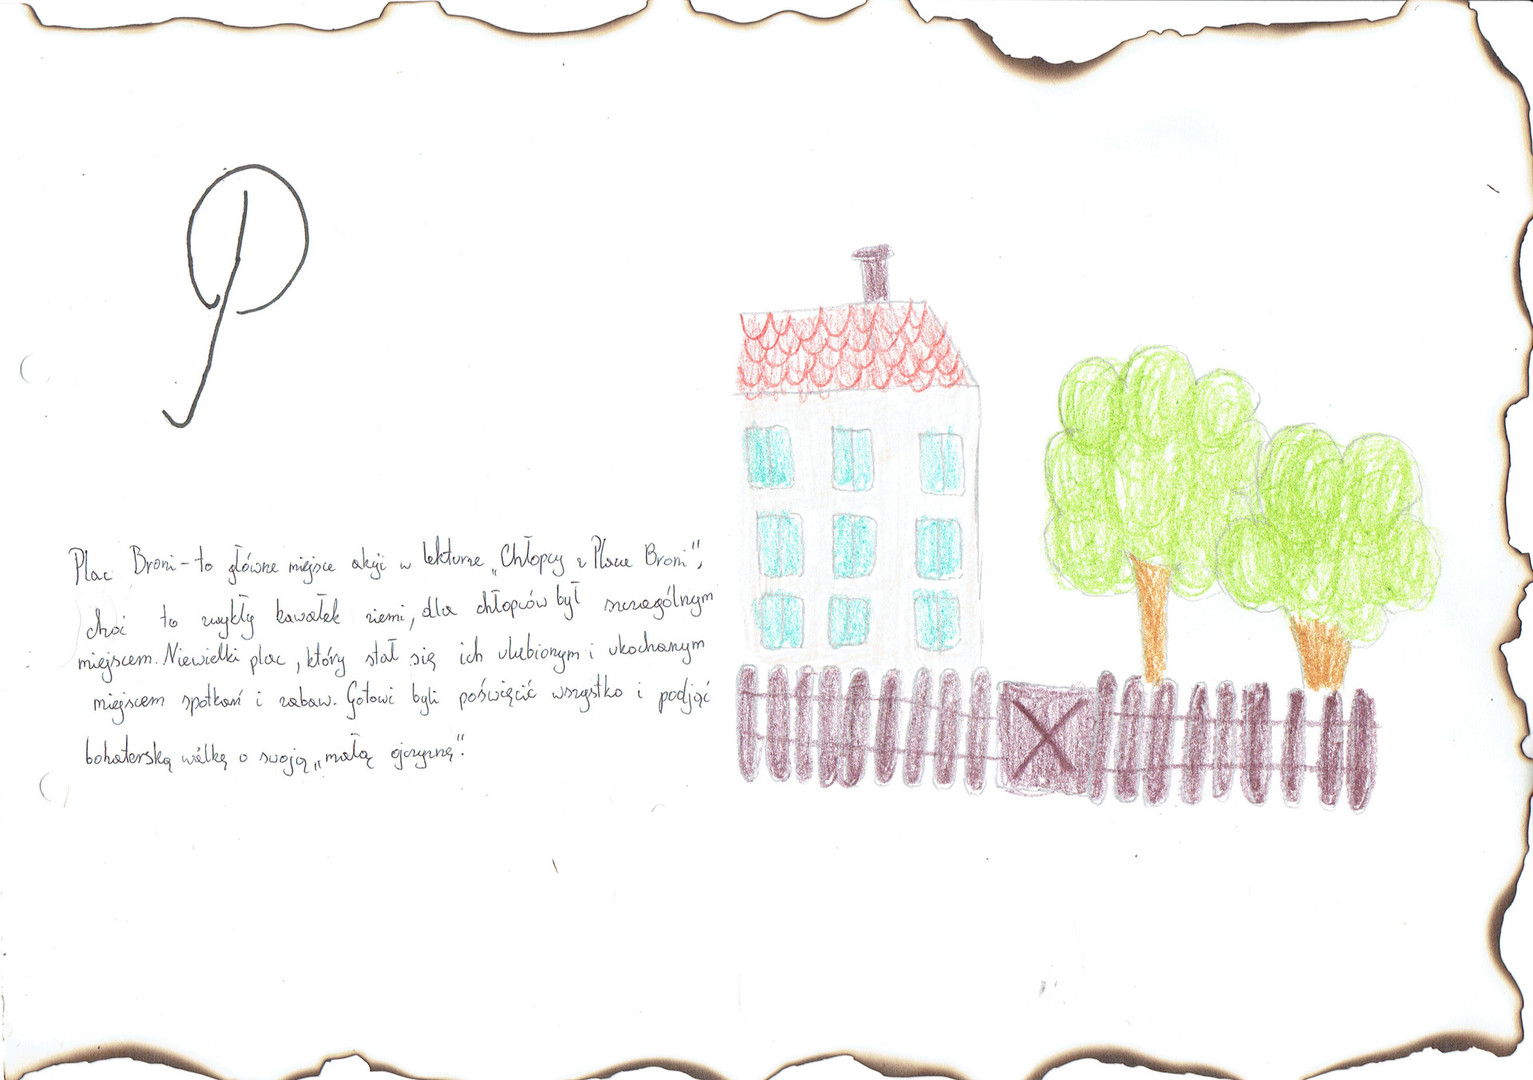 P
Plac Broni - to główne miejsce akcji w lekturze „Chłopcy z Placu Broni”,
choć to zwykły kawałek ziemi, dla chłopców był szczególnym
miejscem. Niewielki plac, który stał się ich ulubionym i ukochanym
miejscem spotkań i zabaw. Gotowi byli poświęcić wszystko i podjąć
bohaterską walkę o swoją „małą ojczyznę”.